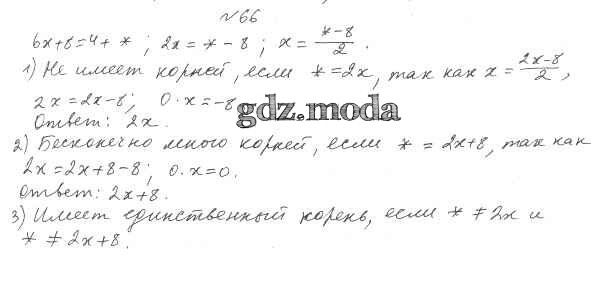 №66
6x+8=4+*; 2x=*-8; x=\frac{*-8}{2}.
1) Не имеет корней, если *=2x, так как x=\frac{2x-8}{2},
2x=2x-8; 0·x=-8
gdz.moda
Ответ: 2x.
2) Бесконечно много корней, если * = 2x+8, так как
2x=2x+8-8; 0·x=0.
Ответ: 2x+8.
3) Имеет единственный корень, если * ≠ 2x и
* ≠ 2x+8.